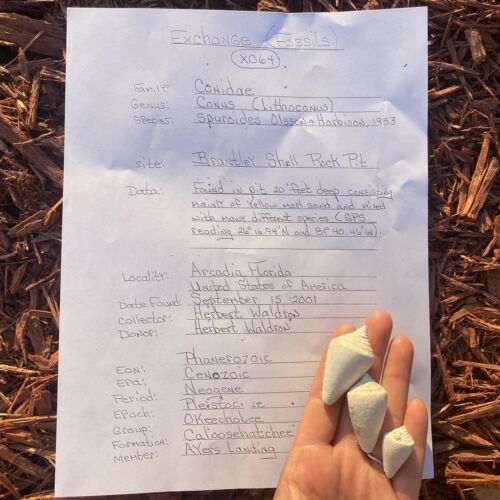 Exchange (Fossils)
XO64
Family: Conidae
Genus: Conus (Lithoconus)
Species: Spuroides Olsson & Harbison, 1953
Site: Brantley Shell Rock Pit
Data: Found in pit 20 feet deep consisting
mainly of Yellow marl sand and mixed
with many different species (GPS
reading 26° 16.94' N and 81° 40.46' W).
Locality: Arcadia, Florida
United States of America
Date Found: September 15, 2001
Collector: Herbert Waldron
Donor: Herbert Waldron
Eon: Phanerozoic
Era: Cenozoic
Period: Neogene
Epoch: Pleistocene
Group: Okeechobee
Formation: Caloosahatchee
Member: Ayers Landing